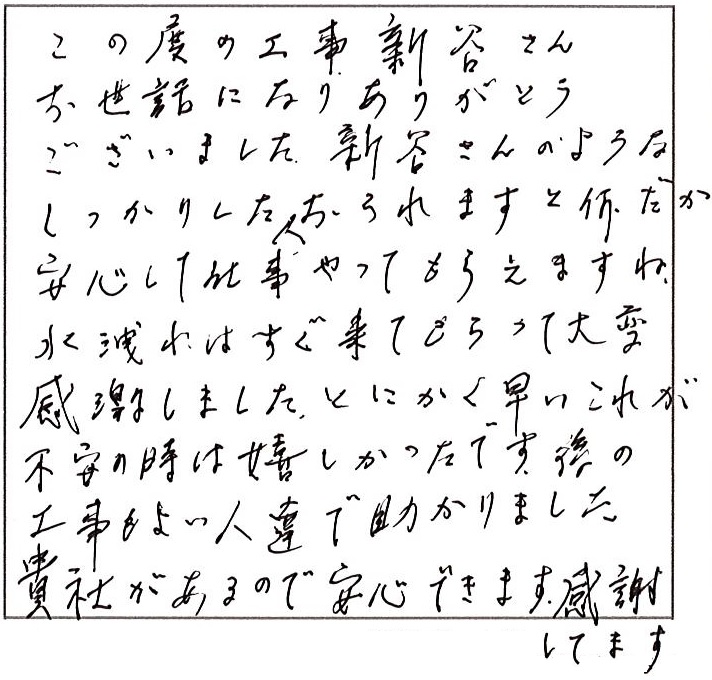 この度の工事新谷さん
お世話になりありがとう
ございました。新谷さんのような
しっかりした人おられますと何だか
安心して仕事やってもらえますね。
水洩れはすぐ来てもらって大変
感謝しました。とにかく早いこれが
不安の時は嬉しかったです。後の
工事もよい人達で助かりました。
貴社があるので安心できます。感謝
してます